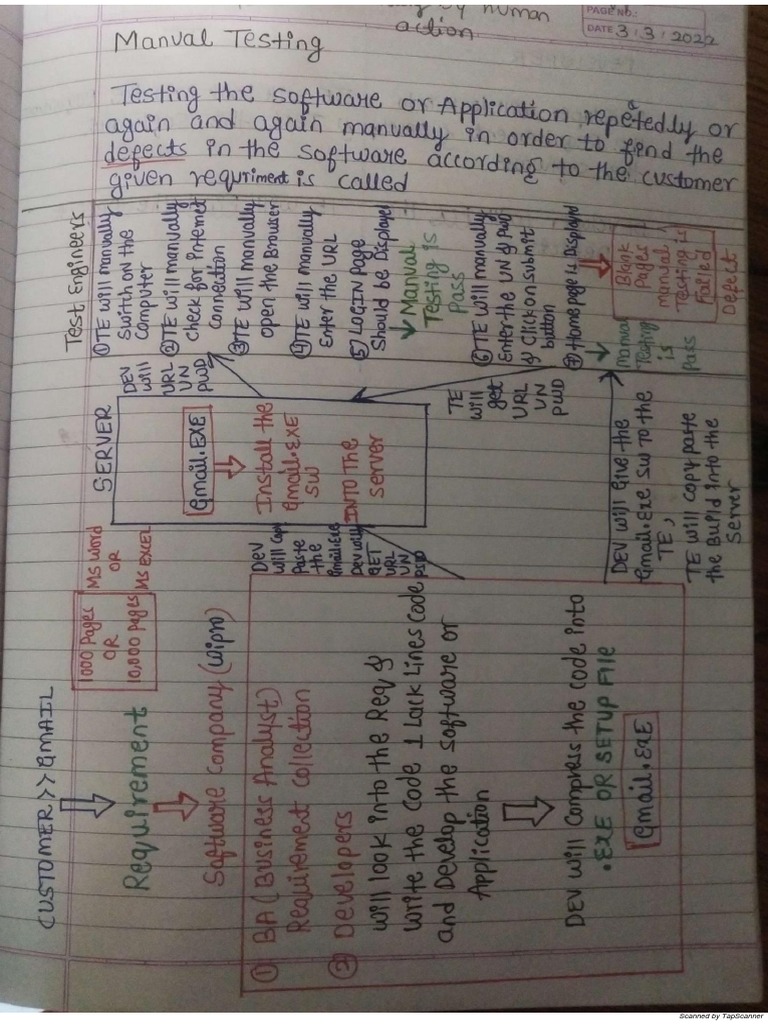 by human
action
PAGE NO.:
DATE 3/3/2022
Manval Testing
Testing the software or Application repetedly or
again and again manually in order to find the
defects in the software according to the customer
given requriment is called
CUSTOMER >> GMAIL
Requirement
1000 Pages
OR
10,000 Pages
MS Word
OR
MS EXCEL
Software company (wipro)
① BA (Business Analyst)
Requirement collection
② Developers
will look into the Req &
write the code 1 Lack Lines code
and Develop the software or
Application
DEV will Compress the code into
.EXE OR SETUP FILE
Gmail.EXE
DEV
will Copy
Paste
the
Gmail.EXE
Dev will
GET
URL
UN
PWD
SERVER
Gmail.EXE
Install the
Gmail.EXE
SW
INTO The
server
DEV
will
URL
UN
PWD
TE
will
get
URL
UN
PWD
DEV will Give the
Gmail.EXE SW TO the
TE,
TE will copy paste
the Build into the
Server
Test Engineers
① TE will manually
Switch on the
computer
② TE will manually
Check for Internet
Connection
③ TE will manually
open the Browser
④ TE will manually
Enter the URL
⑤ LOGIN Page
Should be Displayed
Manual
Testing is
Pass
⑥ TE will manually
Enter the UN & PWD
& Click on submit
button
⑦ Home page is Displayed
Manual
Testing
is
Pass
Blank
Pages
manual
Testing is
Failed
Defect
Scanned by TapScanner